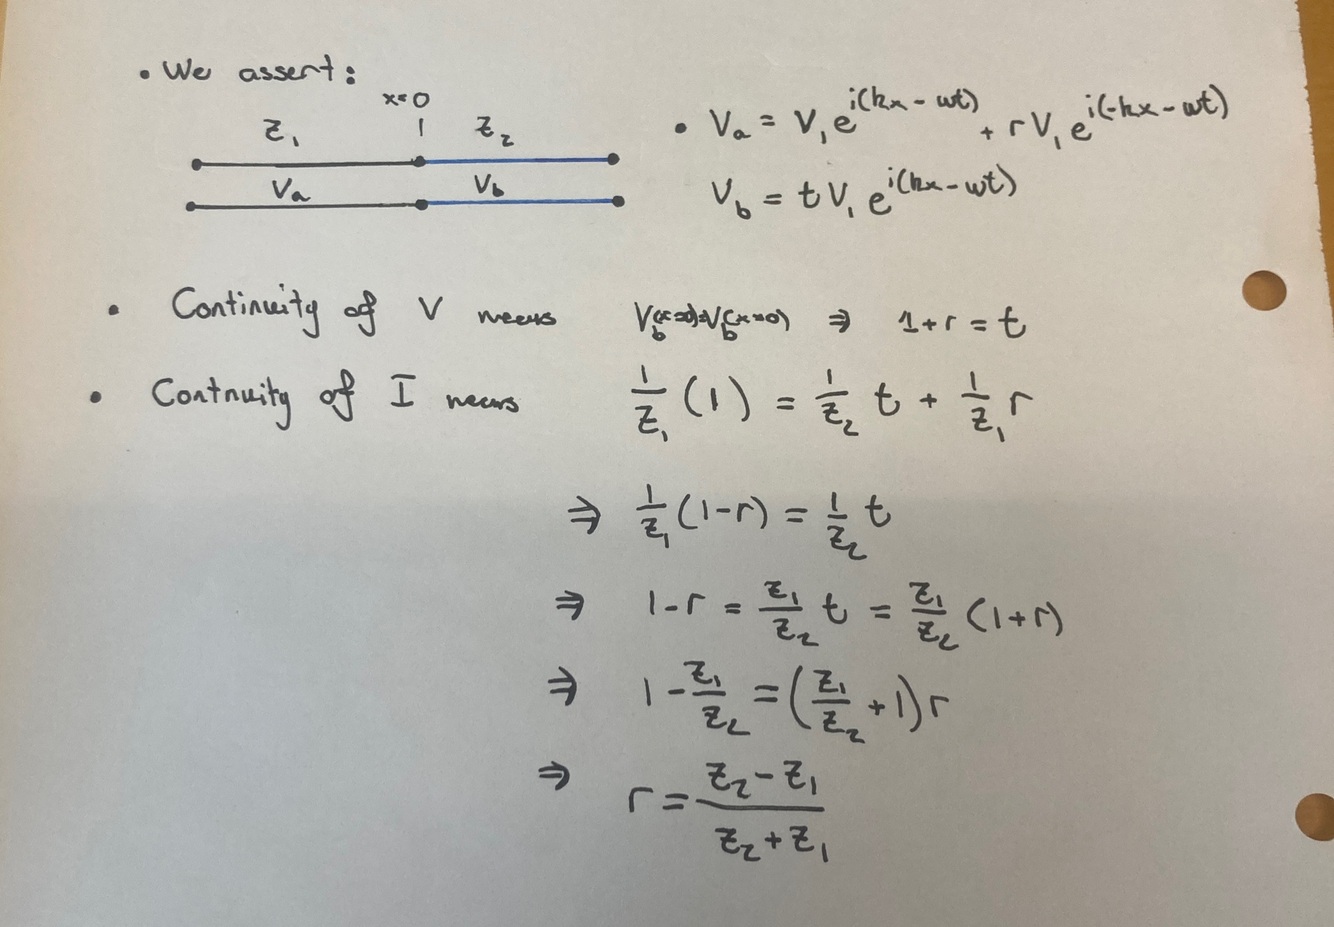 • We assert:
x=0
Z₁ | Z₂
Vₐ V_b
• Vₐ = V₁ e^{i(kx - ωt)} + r V₁ e^{i(-kx - ωt)}
V_b = t V₁ e^{i(kx - ωt)}
• Continuity of V means V_b(x=0)=V_b(x=0) ⇒ 1+r = t
• Contnuity of I means 1/Z₁ (1) = 1/Z₂ t + 1/Z₁ r
⇒ 1/Z₁ (1-r) = 1/Z₂ t
⇒ 1-r = Z₁/Z₂ t = Z₁/Z₂ (1+r)
⇒ 1 - Z₁/Z₂ = (Z₁/Z₂ + 1) r
⇒ r = (Z₂ - Z₁)/(Z₂ + Z₁)